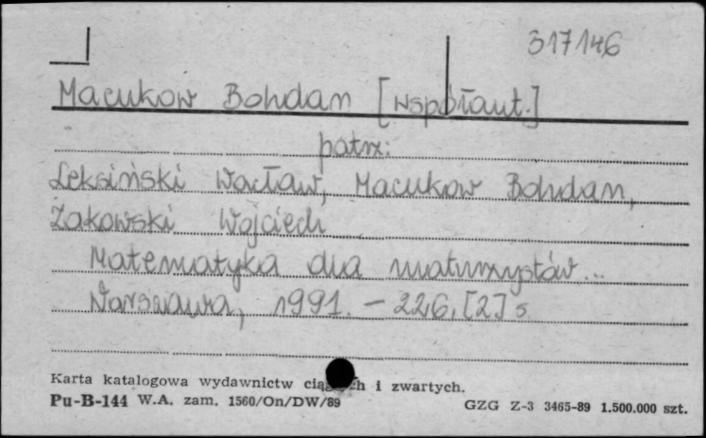 317146
Macukow Bohdan [współaut.]
patrz:
Leksiński Wacław, Macukow Bohdan,
Żakowski Wojciech
Matematyka dla maturzystów...
Warszawa, 1991. - 226, [2] s
Karta katalogowa wydawnictw ciągłych i zwartych.
Pu-B-144 W.A. zam. 1560/On/DW/89
GZG Z-3 3465-89 1.500.000 szt.